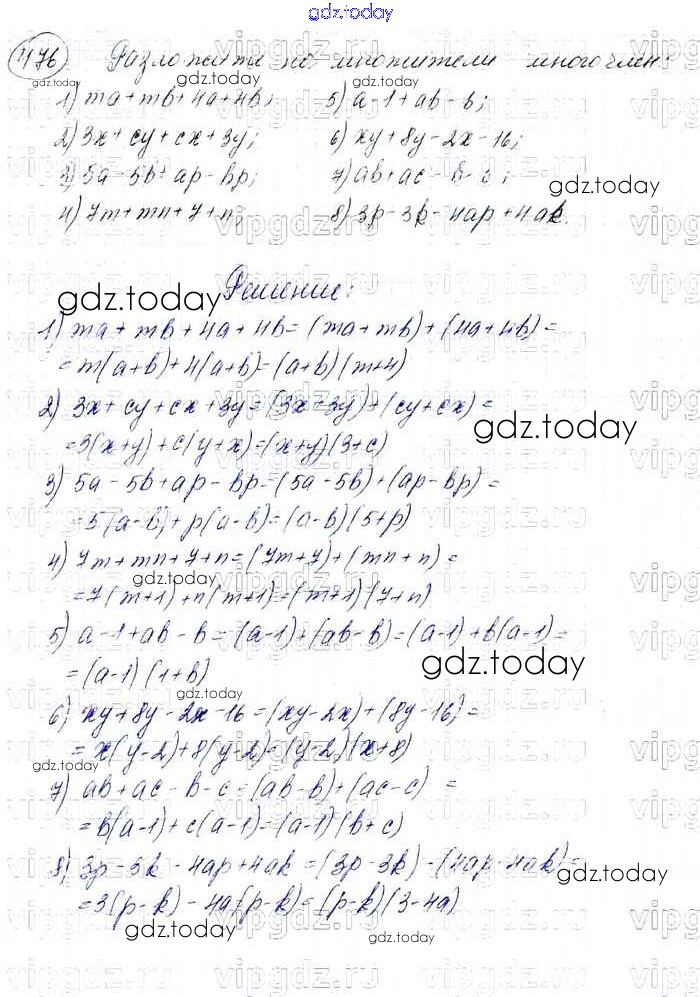 gdz.today
476 Разложите на множители многочлен:
1) ma+mb+4a+4b; 5) a-1+ab-b;
2) 3x+cy+cx+3y; 6) xy+8y-2x-16;
3) 5a-5b+ap-bp; 7) ab+ac-b-c;
4) 7m+mn+7+n; 8) 3p-3k-4ap+4ak.
Решение:
1) ma+mb+4a+4b=(ma+mb)+(4a+4b)=
=m(a+b)+4(a+b)=(a+b)(m+4)
2) 3x+cy+cx+3y=(3x+3y)+(cy+cx)=
=3(x+y)+c(y+x)=(x+y)(3+c)
3) 5a-5b+ap-bp=(5a-5b)+(ap-bp)=
=5(a-b)+p(a-b)=(a-b)(5+p)
4) 7m+mn+7+n=(7m+7)+(mn+n)=
=7(m+1)+n(m+1)=(m+1)(7+n)
5) a-1+ab-b=(a-1)+(ab-b)=(a-1)+b(a-1)=
=(a-1)(1+b)
6) xy+8y-2x-16=(xy-2x)+(8y-16)=
=x(y-2)+8(y-2)=(y-2)(x+8)
7) ab+ac-b-c=(ab-b)+(ac-c)=
=b(a-1)+c(a-1)=(a-1)(b+c)
8) 3p-3k-4ap+4ak=(3p-3k)-(4ap-4ak)=
=3(p-k)-4a(p-k)=(p-k)(3-4a)